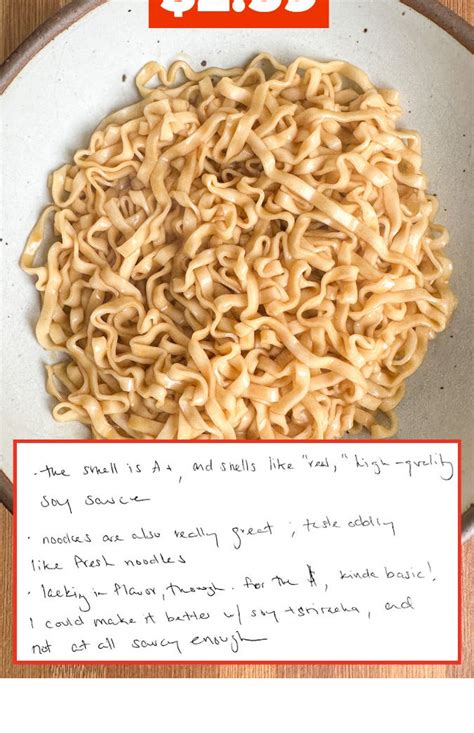 · the smell is A+, and smells like "real," high-quality
soy sauce
· noodles are also really great; taste oddly
like fresh noodles
· lacking in flavor, though. for the $, kinda basic!
I could make it better w/ soy + sriracha, and
not at all saucy enough